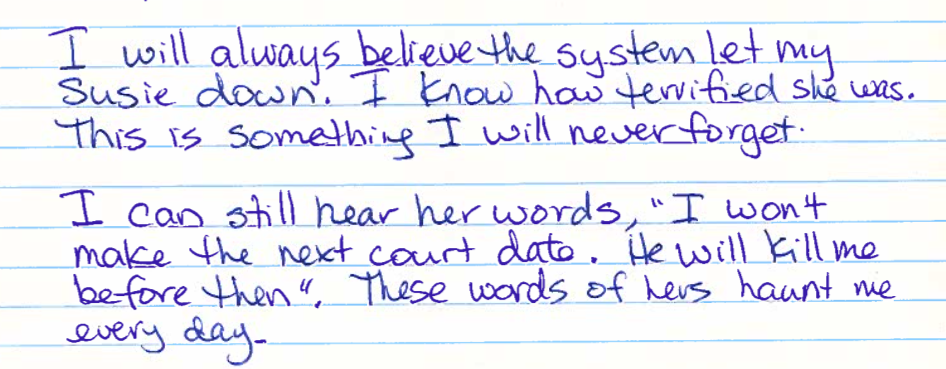 I will always believe the system let my
Susie down. I know how terrified she was.
This is something I will never forget.
I can still hear her words, "I won't
make the next court date. He will kill me
before then". These words of hers haunt me
every day.